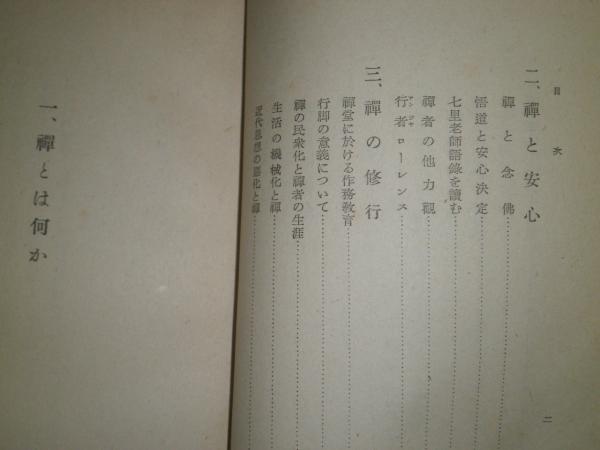 目次
二、禪と安心
禪と念佛
悟道と安心決定
七里老師語錄を讀む
禪者の他力觀
行者ローレンス
アンジャ
三、禪の修行
禪堂に於ける作務敎育
行脚の意義について
禪の民衆化と禪者の生涯
生活の機械化と禪
近代思想の惡化と禪
二
一、禪とは何か